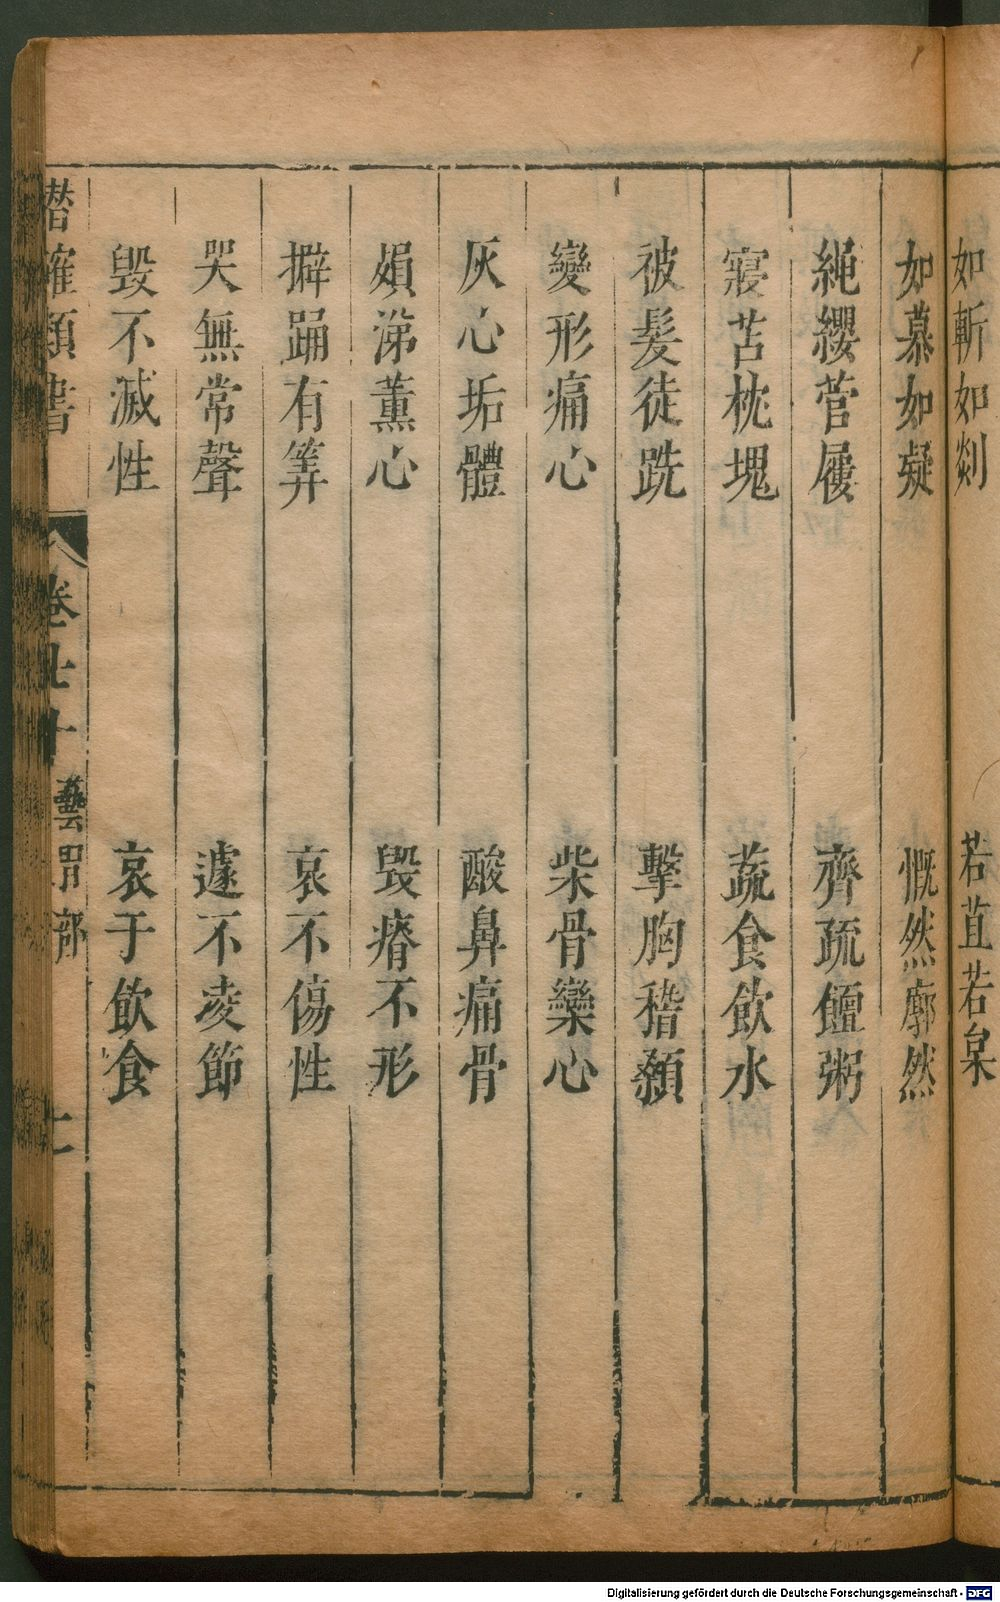 如斬如剡　若苴若枲
如慕如疑　慨然廓然
繩纓菅屨　齊疏饘粥
寢苫枕塊　蔬食飲水
被髮徒跣　擊胸稽顙
變形痛心　柴骨欒心
灰心垢體　酸鼻痛骨
殞涕薰心　毀瘠不形
擗踊有筭　哀不傷性
哭無常聲　遽不凌節
毀不滅性　哀于飲食
潛確類書　卷七十　藝習部　七
Digitalisierung gefördert durch die Deutsche Forschungsgemeinschaft - DFG